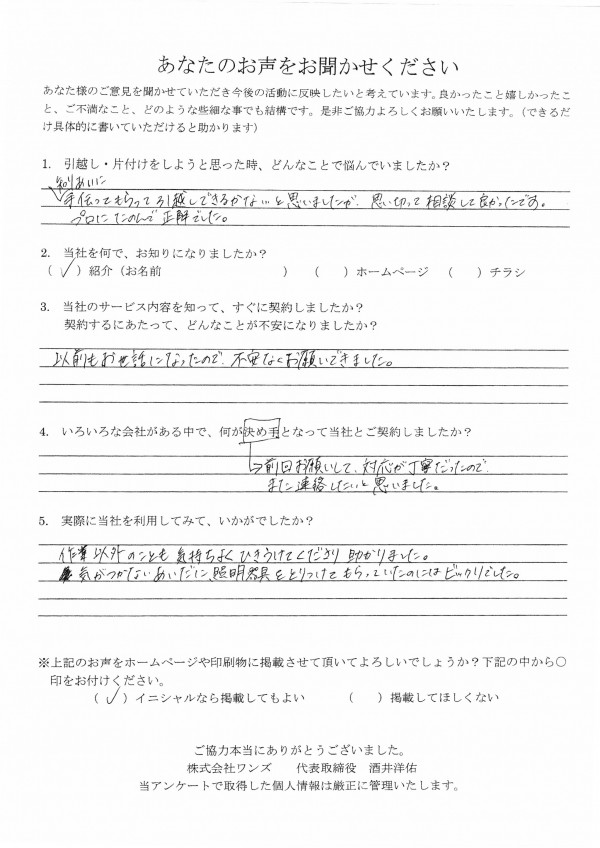 あなたのお声をお聞かせください
あなた様のご意見を聞かせていただき今後の活動に反映したいと考えています。良かったこと嬉しかったこ
と、ご不満なこと、どのような些細な事でも結構です。是非ご協力よろしくお願いいたします。（できるだ
け具体的に書いていただけると助かります）
1. 引越し・片付けをしようと思った時、どんなことで悩んでいましたか？
知りあいに
手伝ってもらって引越しできるかな…と思いましたが、思い切って相談して良かったです。
プロにたのんで正解でした。
2. 当社を何で、お知りになりましたか？
（ ✓ ）紹介（お名前 ） （ ）ホームページ （ ）チラシ
3. 当社のサービス内容を知って、すぐに契約しましたか？
契約するにあたって、どんなことが不安になりましたか？
以前もお世話になったので、不安なくお願いできました。
4. いろいろな会社がある中で、何が決め手となって当社とご契約しましたか？
→前回お願いして、対応が丁寧だったので、
また連絡したいと思いました。
5. 実際に当社を利用してみて、いかがでしたか？
作業以外のことも気持ちよくひきうけてくださり助かりました。
気がつかないあいだに照明器具をとりつけてもらっていたのにはビックリでした。
※上記のお声をホームページや印刷物に掲載させて頂いてよろしいでしょうか？下記の中から○
印をお付けください。
（ ✓ ）イニシャルなら掲載してもよい （ ）掲載してほしくない
ご協力本当にありがとうございました。
株式会社ワンズ 代表取締役 酒井洋佑
当アンケートで取得した個人情報は厳正に管理いたします。